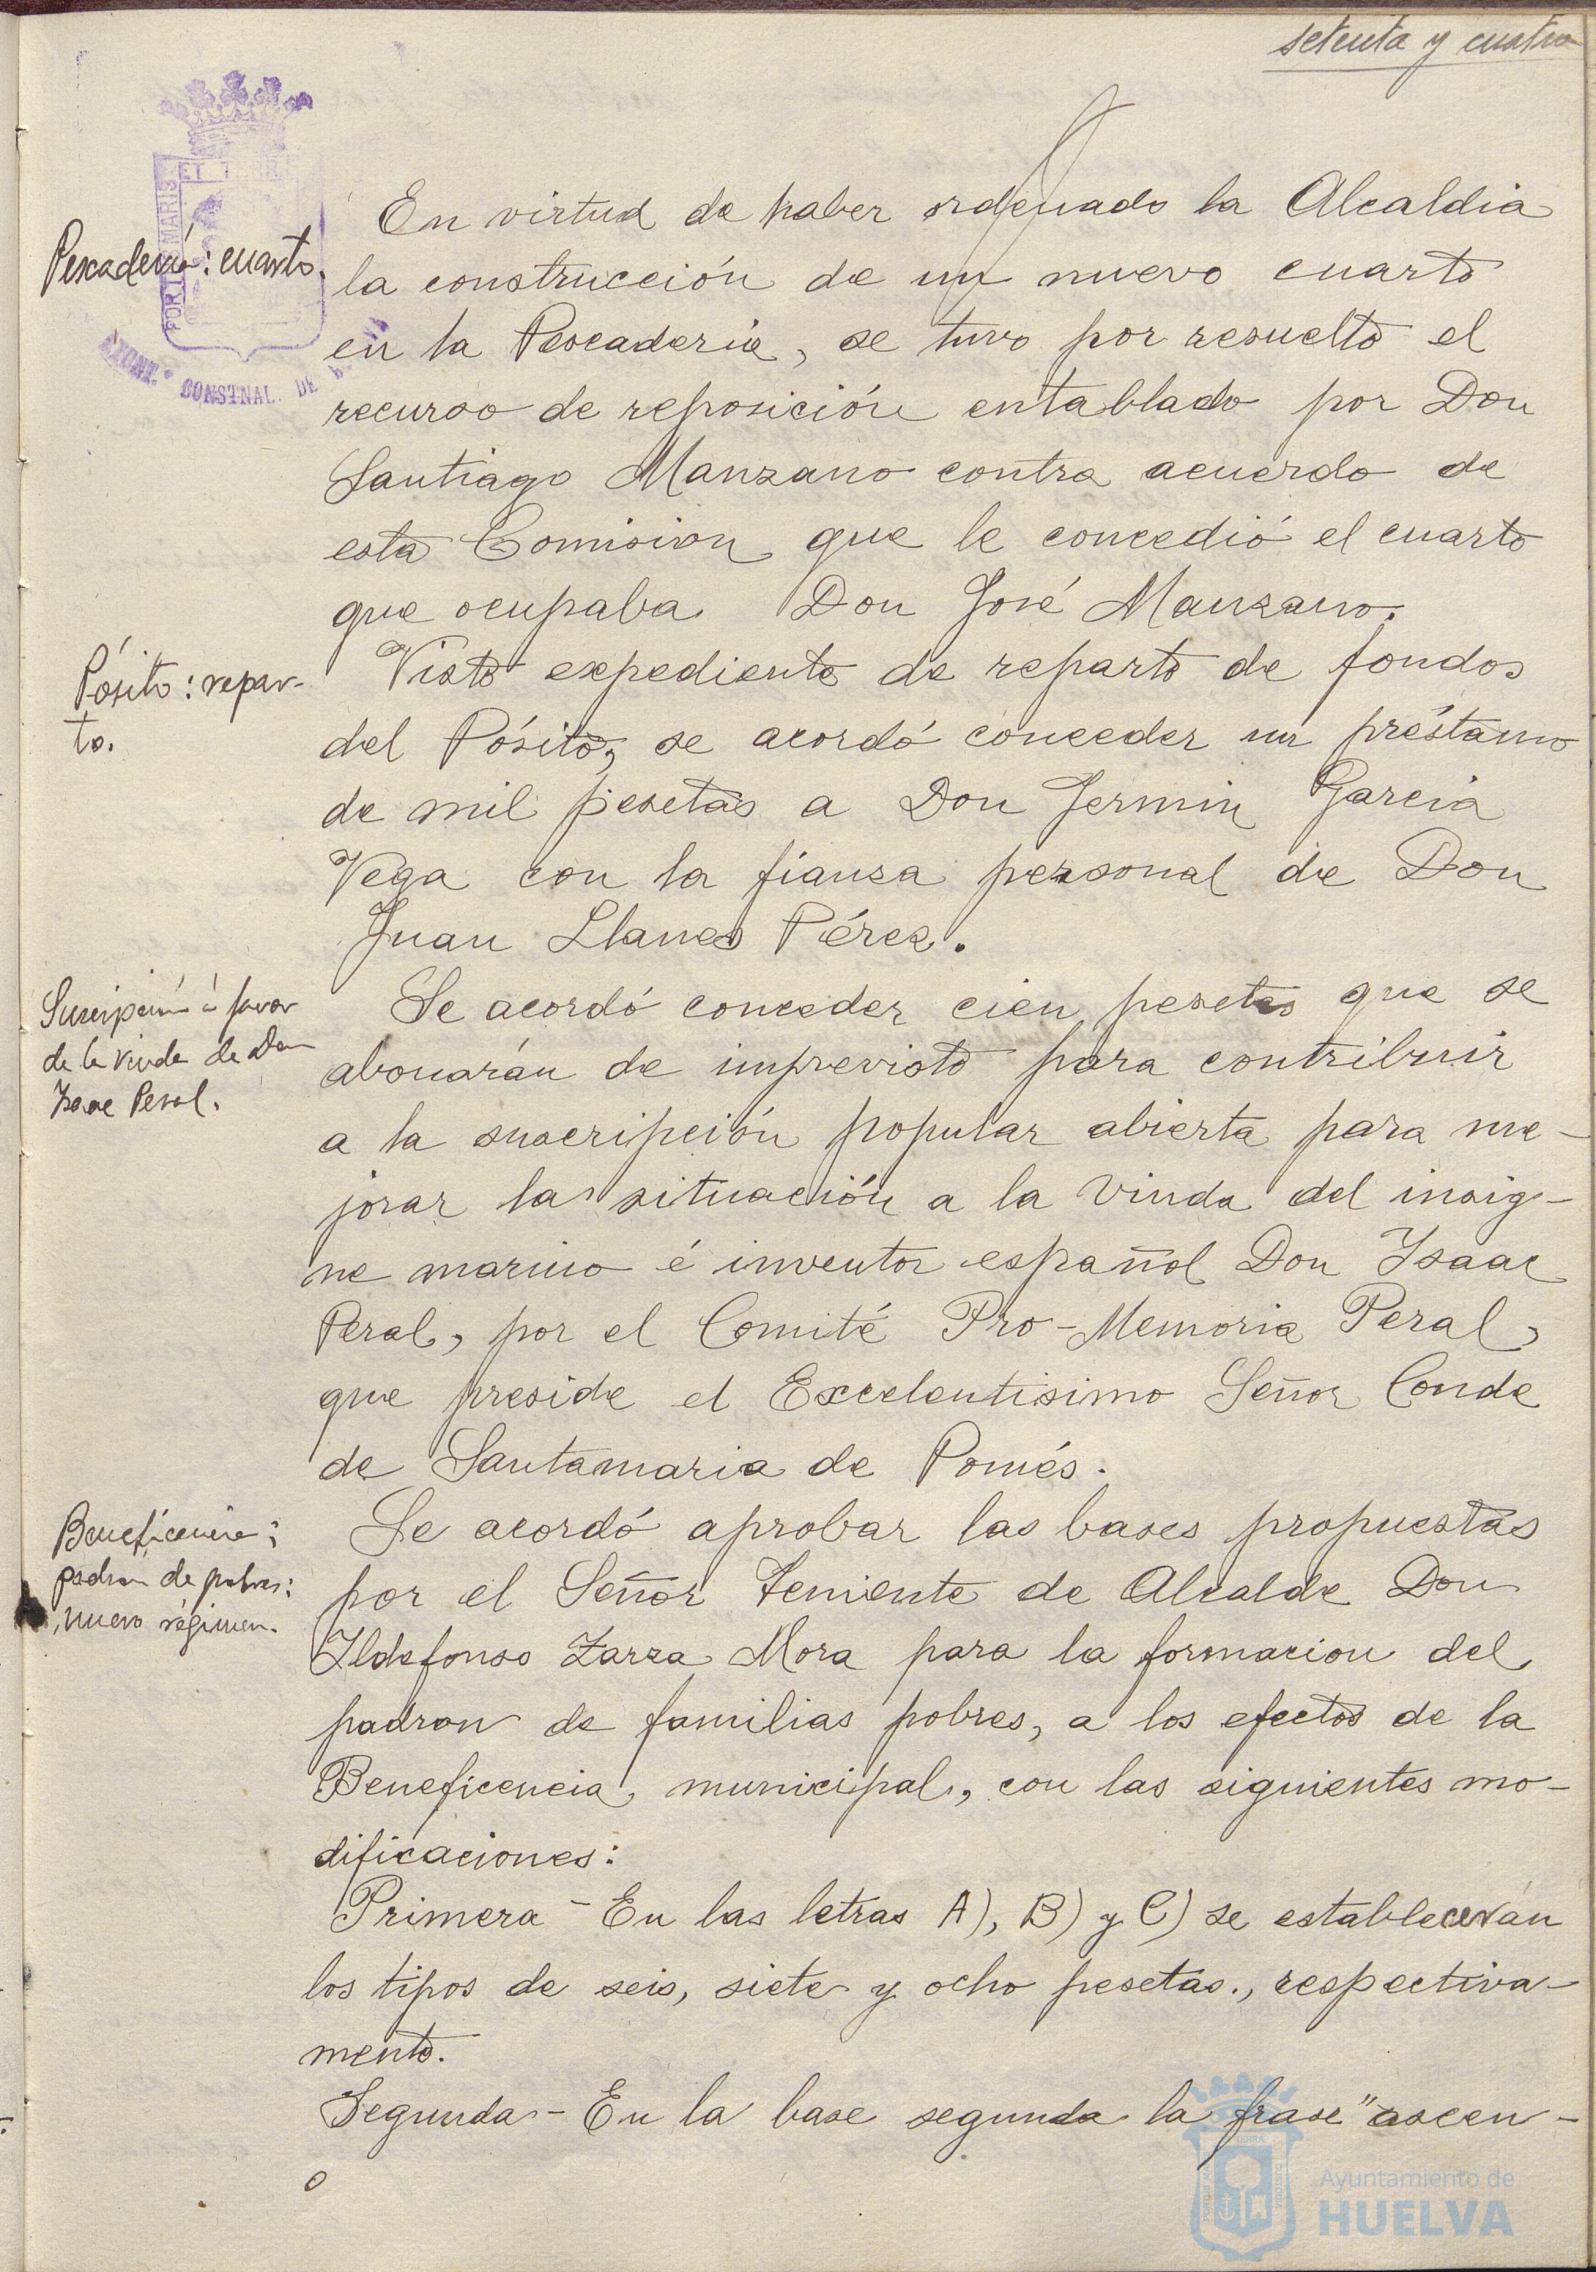 setenta y cuatro
PORTUS MARIS ET TERR
AYUNT. CONSTNAL. DE
Pescadería: cuarto.
En virtud de haber ordenado la Alcaldia
la construcción de un nuevo cuarto
en la Pescaderia, se tuvo por resuelto el
recurso de reposición entablado por Don
Santiago Manzano contra acuerdo de
esta Comision que le concedió el cuarto
que ocupaba Don José Manzano.
Pósito: repar-
to.
Visto expediente de reparto de fondos
del Pósito, se acordó conceder un préstamo
de mil pesetas a Don Fermin Garcia
Vega con la fianza personal de Don
Juan Llanes Pérez.
Suscripción á favor
de la viuda de Don
Isaac Peral.
Se acordó conceder cien pesetas que se
abonarán de imprevisto para contribuir
a la suscripción popular abierta para me-
jorar la situación a la viuda del insig-
ne marino é inventor español Don Isaac
Peral, por el Comité Pro-Memoria Peral,
que preside el Excelentisimo Señor Conde
de Santamaria de Pomés.
Beneficencia:
padron de pobres:
nuevo régimen.
Se acordó aprobar las bases propuestas
por el Señor Teniente de Alcalde Don
Ildefonso Zarza Mora para la formacion del
padron de familias pobres, a los efectos de la
Beneficencia municipal, con las siguientes mo-
dificaciones:
Primera - En las letras A), B) y C) se establecerán
los tipos de seis, siete y ocho pesetas., respectiva-
mente.
Segunda - En la base segunda la frase "ascen-
o
Ayuntamiento de
HUELVA